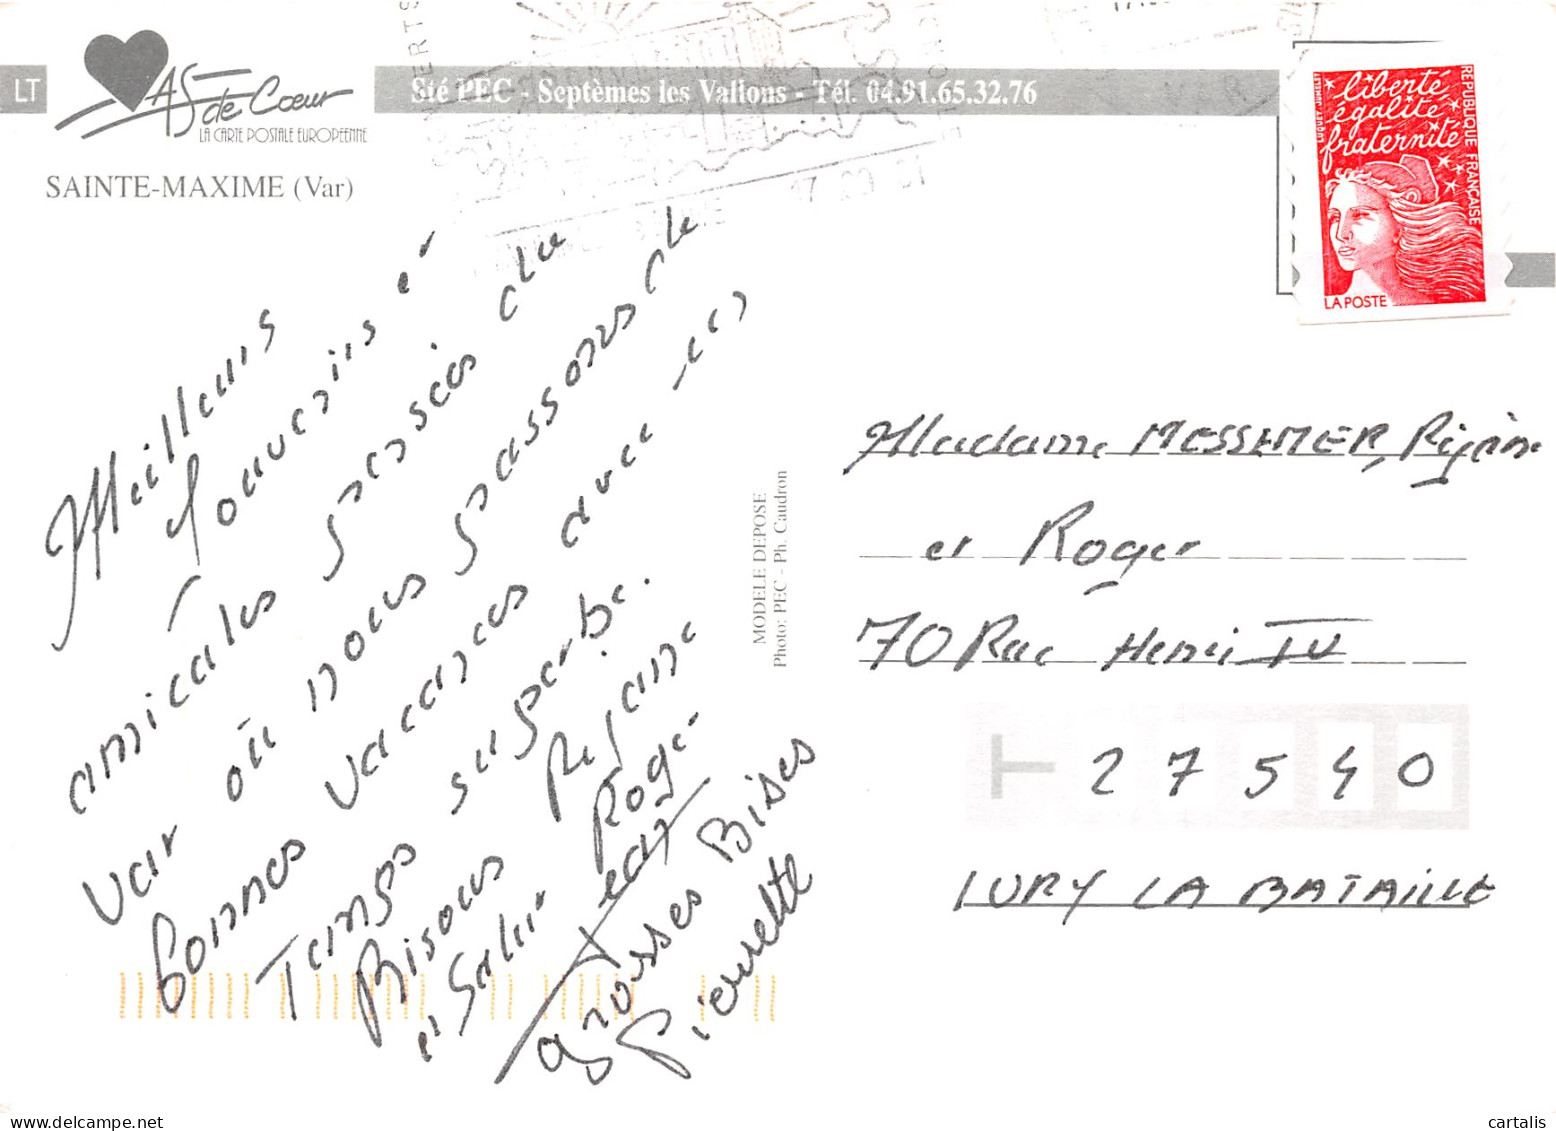 LT
AS de Cœur
LA CARTE POSTALE EUROPEENNE
Sté PEC - Septèmes les Vallons - Tél. 04.91.65.32.76
SAINTE-MAXIME (Var)
liberté
égalité
fraternité
REPUBLIQUE FRANÇAISE
LUQUET-JUMELET
LA POSTE
Meilleurs
souvenirs et
amicales pensées du
var où nous passons de
bonnes vacances avec un
Temps superbe.
Bisous Réjane
et Salut Roger
Jean
grosses Bises
Pierrette
MODELE DEPOSE
Photo: PEC - Ph. Caudron
Madame MESSEMER, Rijàne
et Roger
70 Rue Henri IV
27540
IVRY LA BATAILLE
cartalis